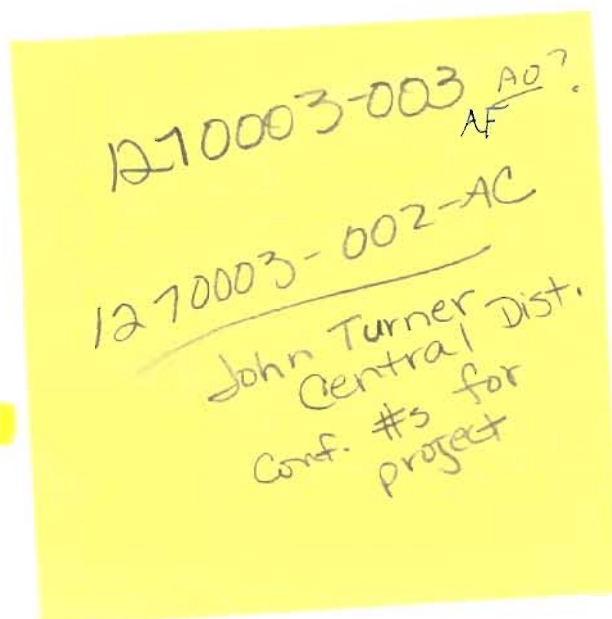 1270003-003 AO?
AF
1270003-002-AC
John Turner
Central Dist.
Conf. #s for
project